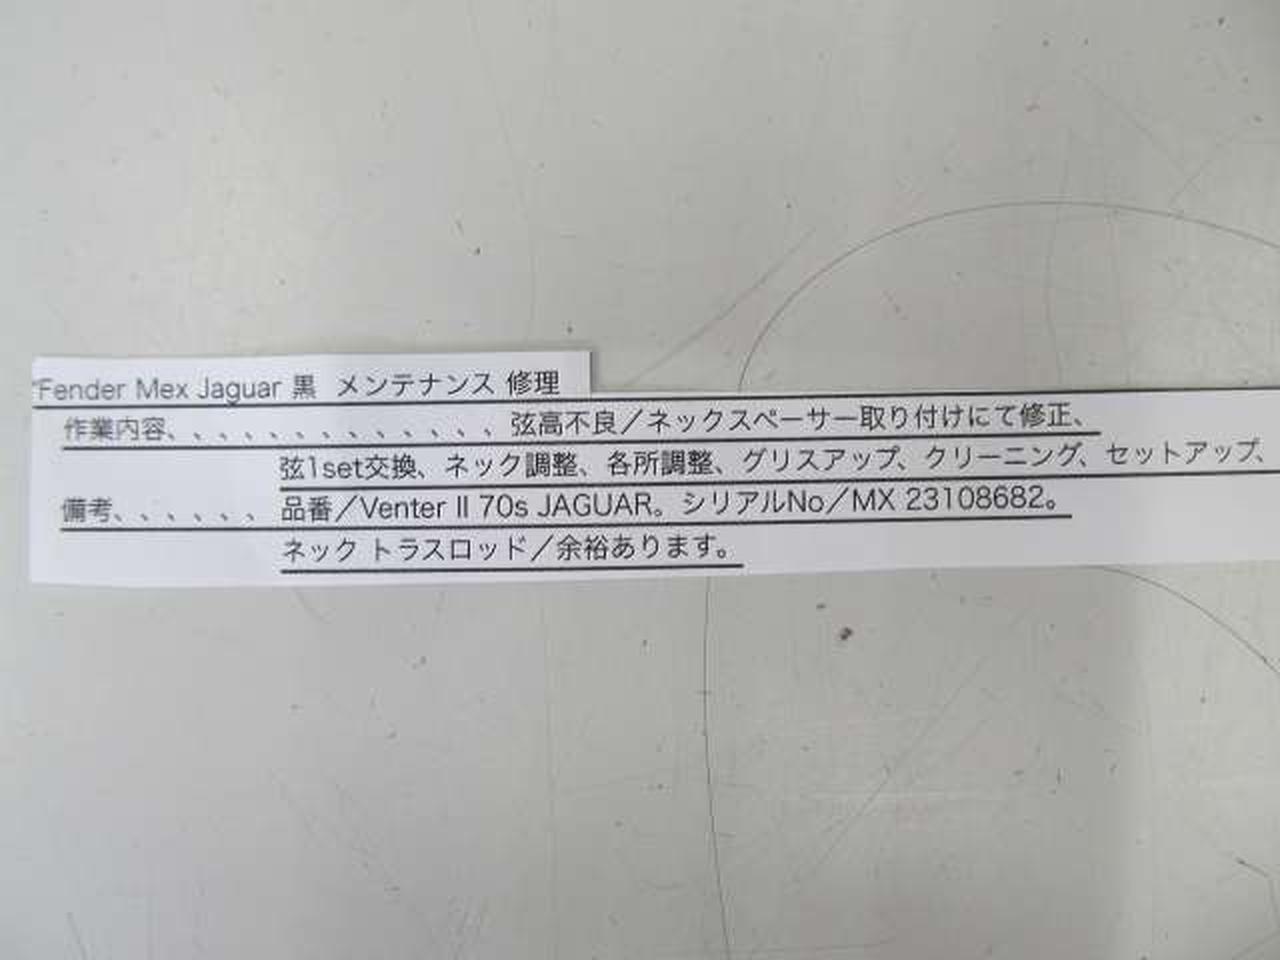 "Fender Mex Jaguar 黒 メンテナンス 修理
作業内容、、、、、、、、、、、、、弦高不良／ネックスペーサー取り付けにて修正、
弦1set交換、ネック調整、各所調整、グリスアップ、クリーニング、セットアップ、
備考、、、、、、品番／Venter II 70s JAGUAR。シリアルNo／MX 23108682。
ネック トラスロッド／余裕あります。